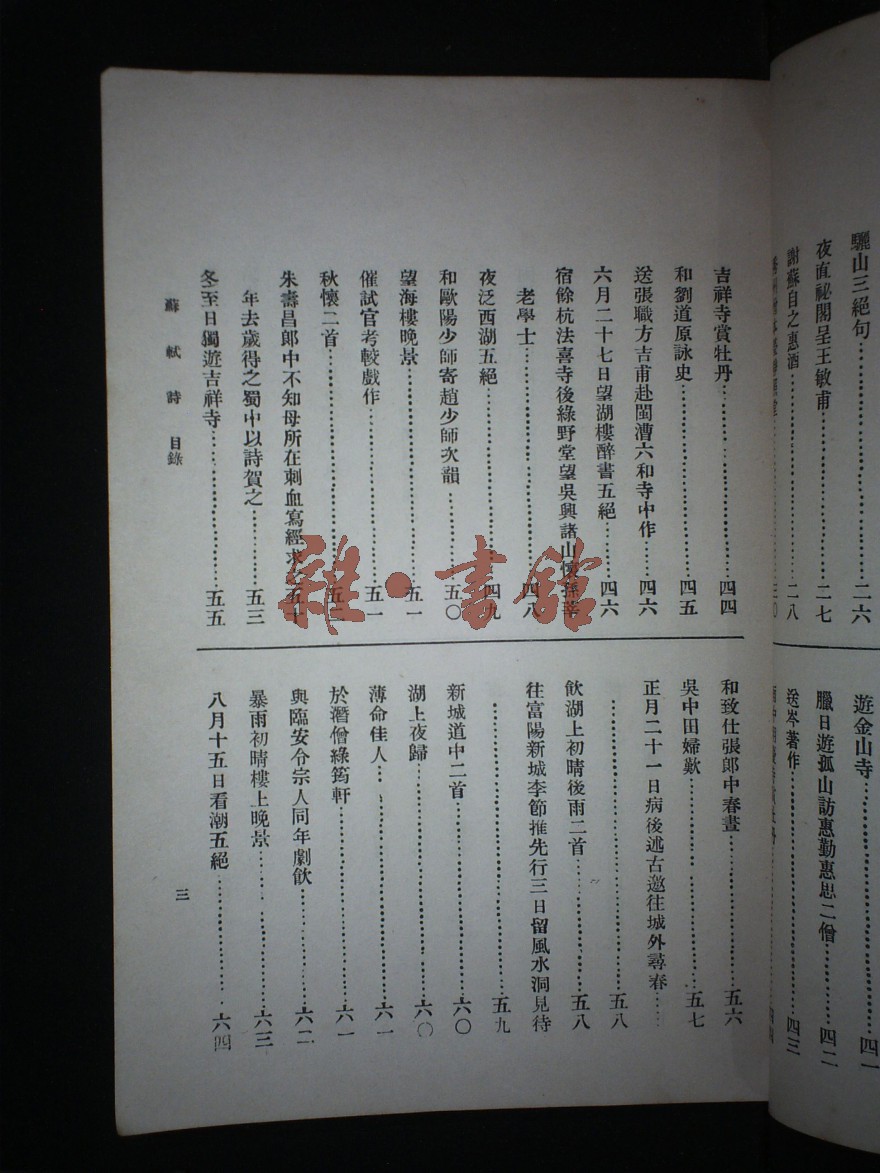 驪山三絕句……………二六
夜直祕閣呈王敏甫……………二七
謝蘇自之惠酒……………二八
三〇
遊金山寺……………四一
臘日遊孤山訪惠勤惠思二僧……………四二
送岑著作……………四三
吉祥寺賞牡丹……………四四
和劉道原詠史……………四五
送張職方吉甫赴閩漕六和寺中作……………四六
六月二十七日望湖樓醉書五絕……………四六
宿餘杭法喜寺後綠野堂望吳興諸山懷孫莘
老學士……………四八
夜泛西湖五絕……………四九
和歐陽少師寄趙少師次韻……………五〇
望海樓晚景……………五一
催試官考較戲作……………五一
秋懷二首……………五二
朱壽昌郎中不知母所在刺血寫經求之五十
年去歲得之蜀中以詩賀之……………五三
冬至日獨遊吉祥寺……………五五
和致仕張郎中春晝……………五六
吳中田婦歎……………五七
正月二十一日病後述古邀往城外尋春……
……………五八
飲湖上初晴後雨二首……………五八
往富陽新城李節推先行三日留風水洞見待
……………五九
新城道中二首……………六〇
湖上夜歸……………六〇
薄命佳人……………六一
於潛僧綠筠軒……………六一
與臨安令宗人同年劇飲……………六二
暴雨初晴樓上晚景……………六三
八月十五日看潮五絕……………六四
蘇軾詩 目錄
三
雜·書館